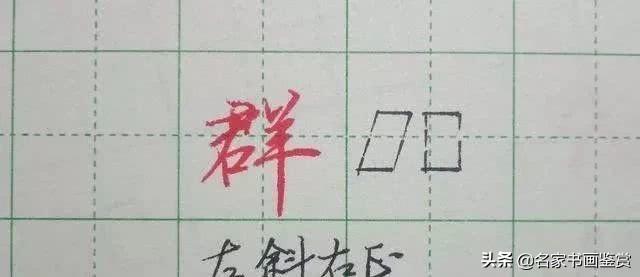 群
左斜右正
头条 @名家书画鉴赏